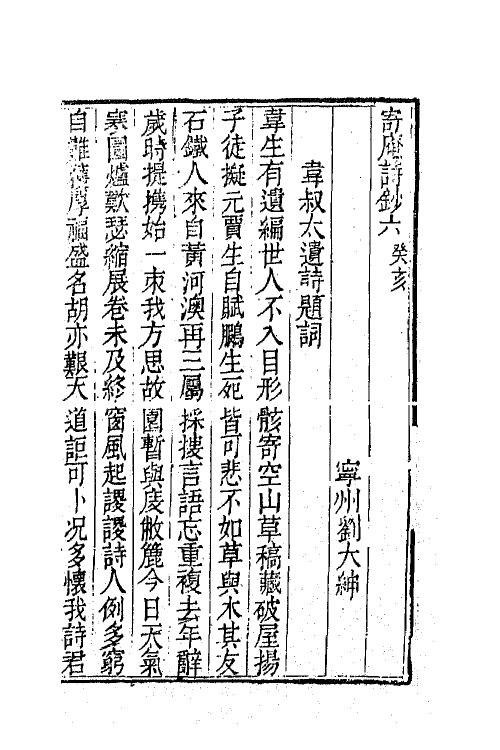 寄庵詩鈔六 癸亥
寧州劉大紳
韋叔大遺詩題詞
韋生有遺編世人不入目形骸寄空山草稿藏破屋揚
子徒擬元賈生自賦鵩生死皆可悲不如草與木其友
石鐵人來自黃河澳再三屬採摟言語忘重複去年辭
歲時提攜始一束我方思故園暫與庋敝簏今日天氣
寒圍爐歎瑟縮展卷未及終窗風起謖謖詩人例多窮
自難犕厚福盛名胡亦艱天道詎可卜况多懷我詩君